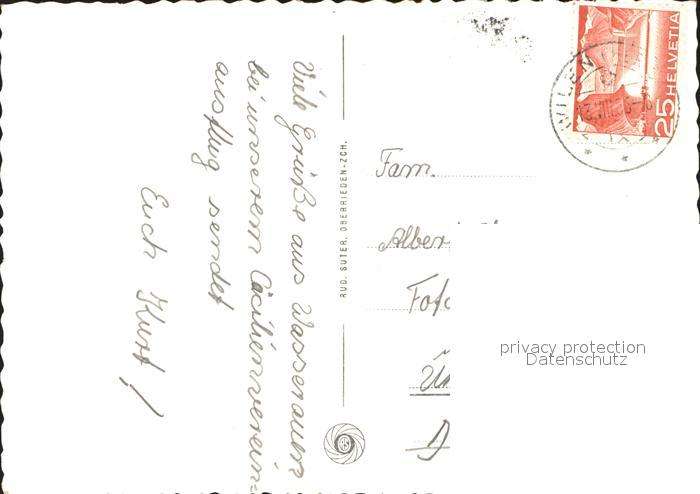 Viele Grüße aus Wasserauen
bei unserem Cäcilienverein
ausflug sendet
Euch Kurt!
RUD. SUTER, OBERRIEDEN-ZCH.
Fam.
Alber
Foto
25 HELVETIA
privacy protection
Datenschutz